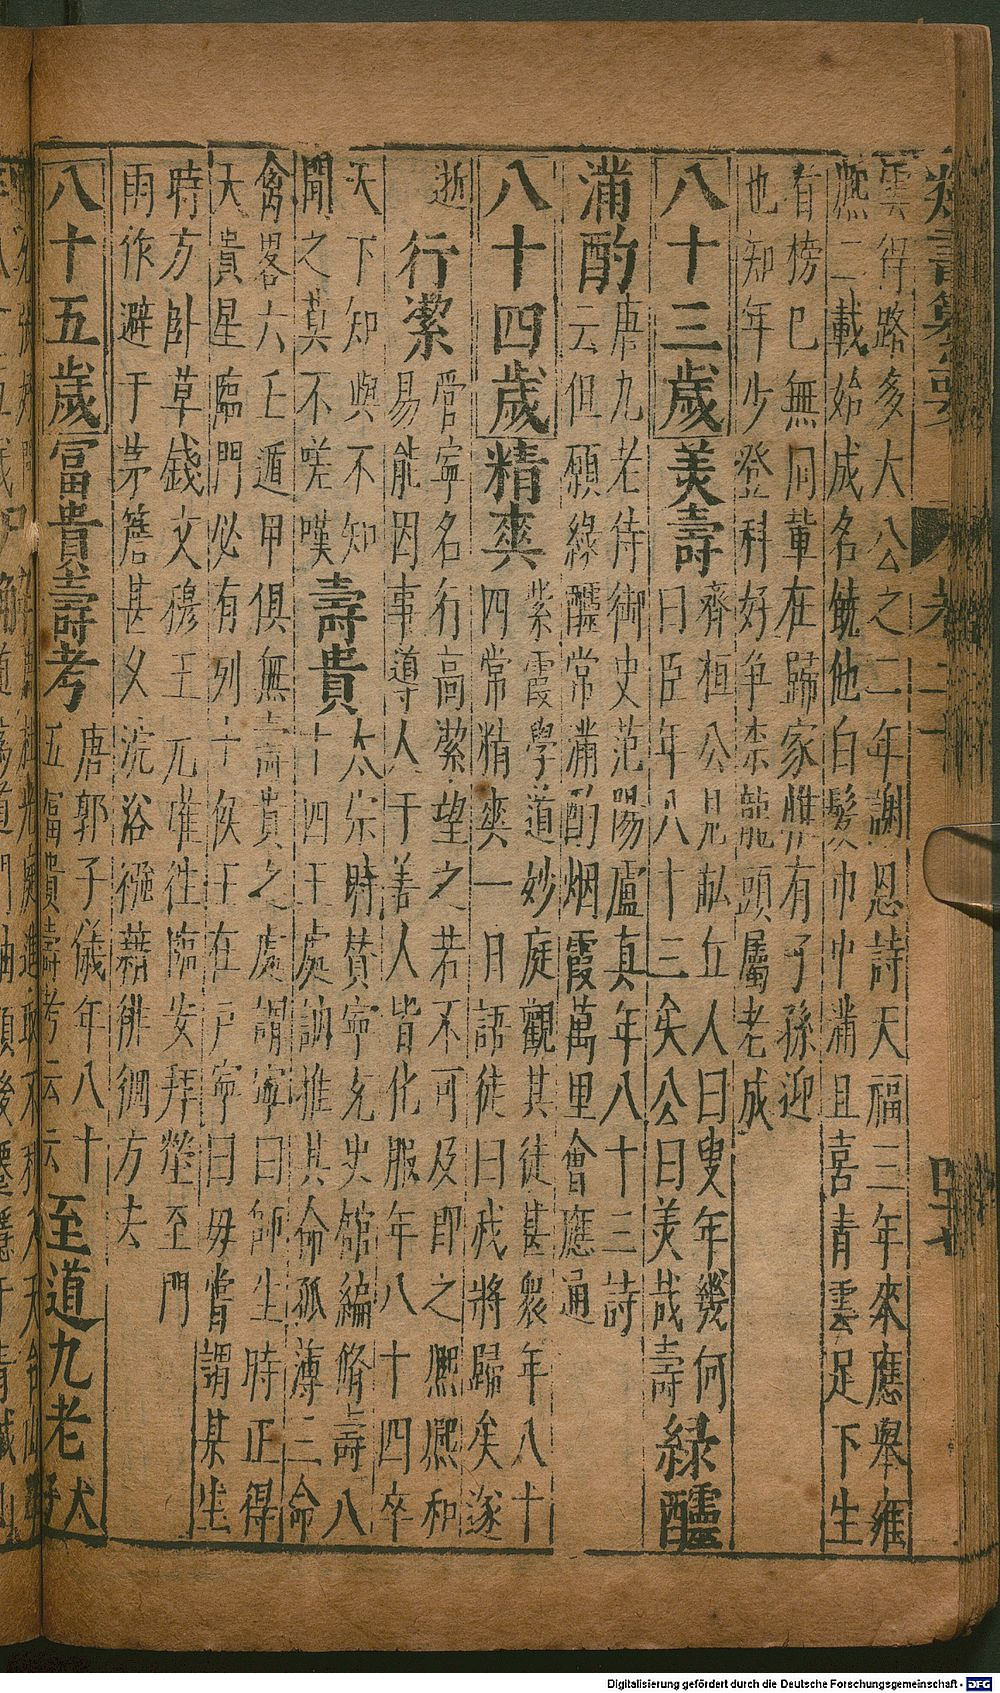 雲得路多大公之二年謝恩詩天福三年來應舉雍
熈二載始成名饒他白髮巾中滿且喜青雲足下生
看榜已無同輩在歸家惟有子孫迎
也知年少登科好爭柰龍頭屬老成
八十三歲 美壽
齊桓公見畝丘人曰叟年幾何
曰臣年八十三矣公曰美哉壽
綠醽
滿酌
唐九老侍御史范陽盧真年八十三詩
云但願綠醽常滿酌烟霞萬里會應通
八十四歲 精爽
紫霞學道妙庭觀其徒甚衆年八十
四常精爽一日語徒曰我將歸矣遂
逝
行潔
管寧名行高潔望之若不可及即之熈熈和
易能因事導人于善人皆化服年八十四卒
天下知與不知
聞之莫不嗟嘆
壽貴
太宗時賛寧充史館編脩壽八
十四王處訥推其命孤薄三命
禽畧六壬遁甲俱無壽貴之處謂寧曰師生時正得
天貴星臨門必有列士侯王在戸寧曰毋嘗謂某生
時方卧草錢文穆王元瓘徃臨安拜塋至門
雨作避于茅簷甚久浣浴襁藉徘徊方去
八十五歲 富貴壽考
唐郭子儀年八十
五富貴壽考云云
至道九老
太